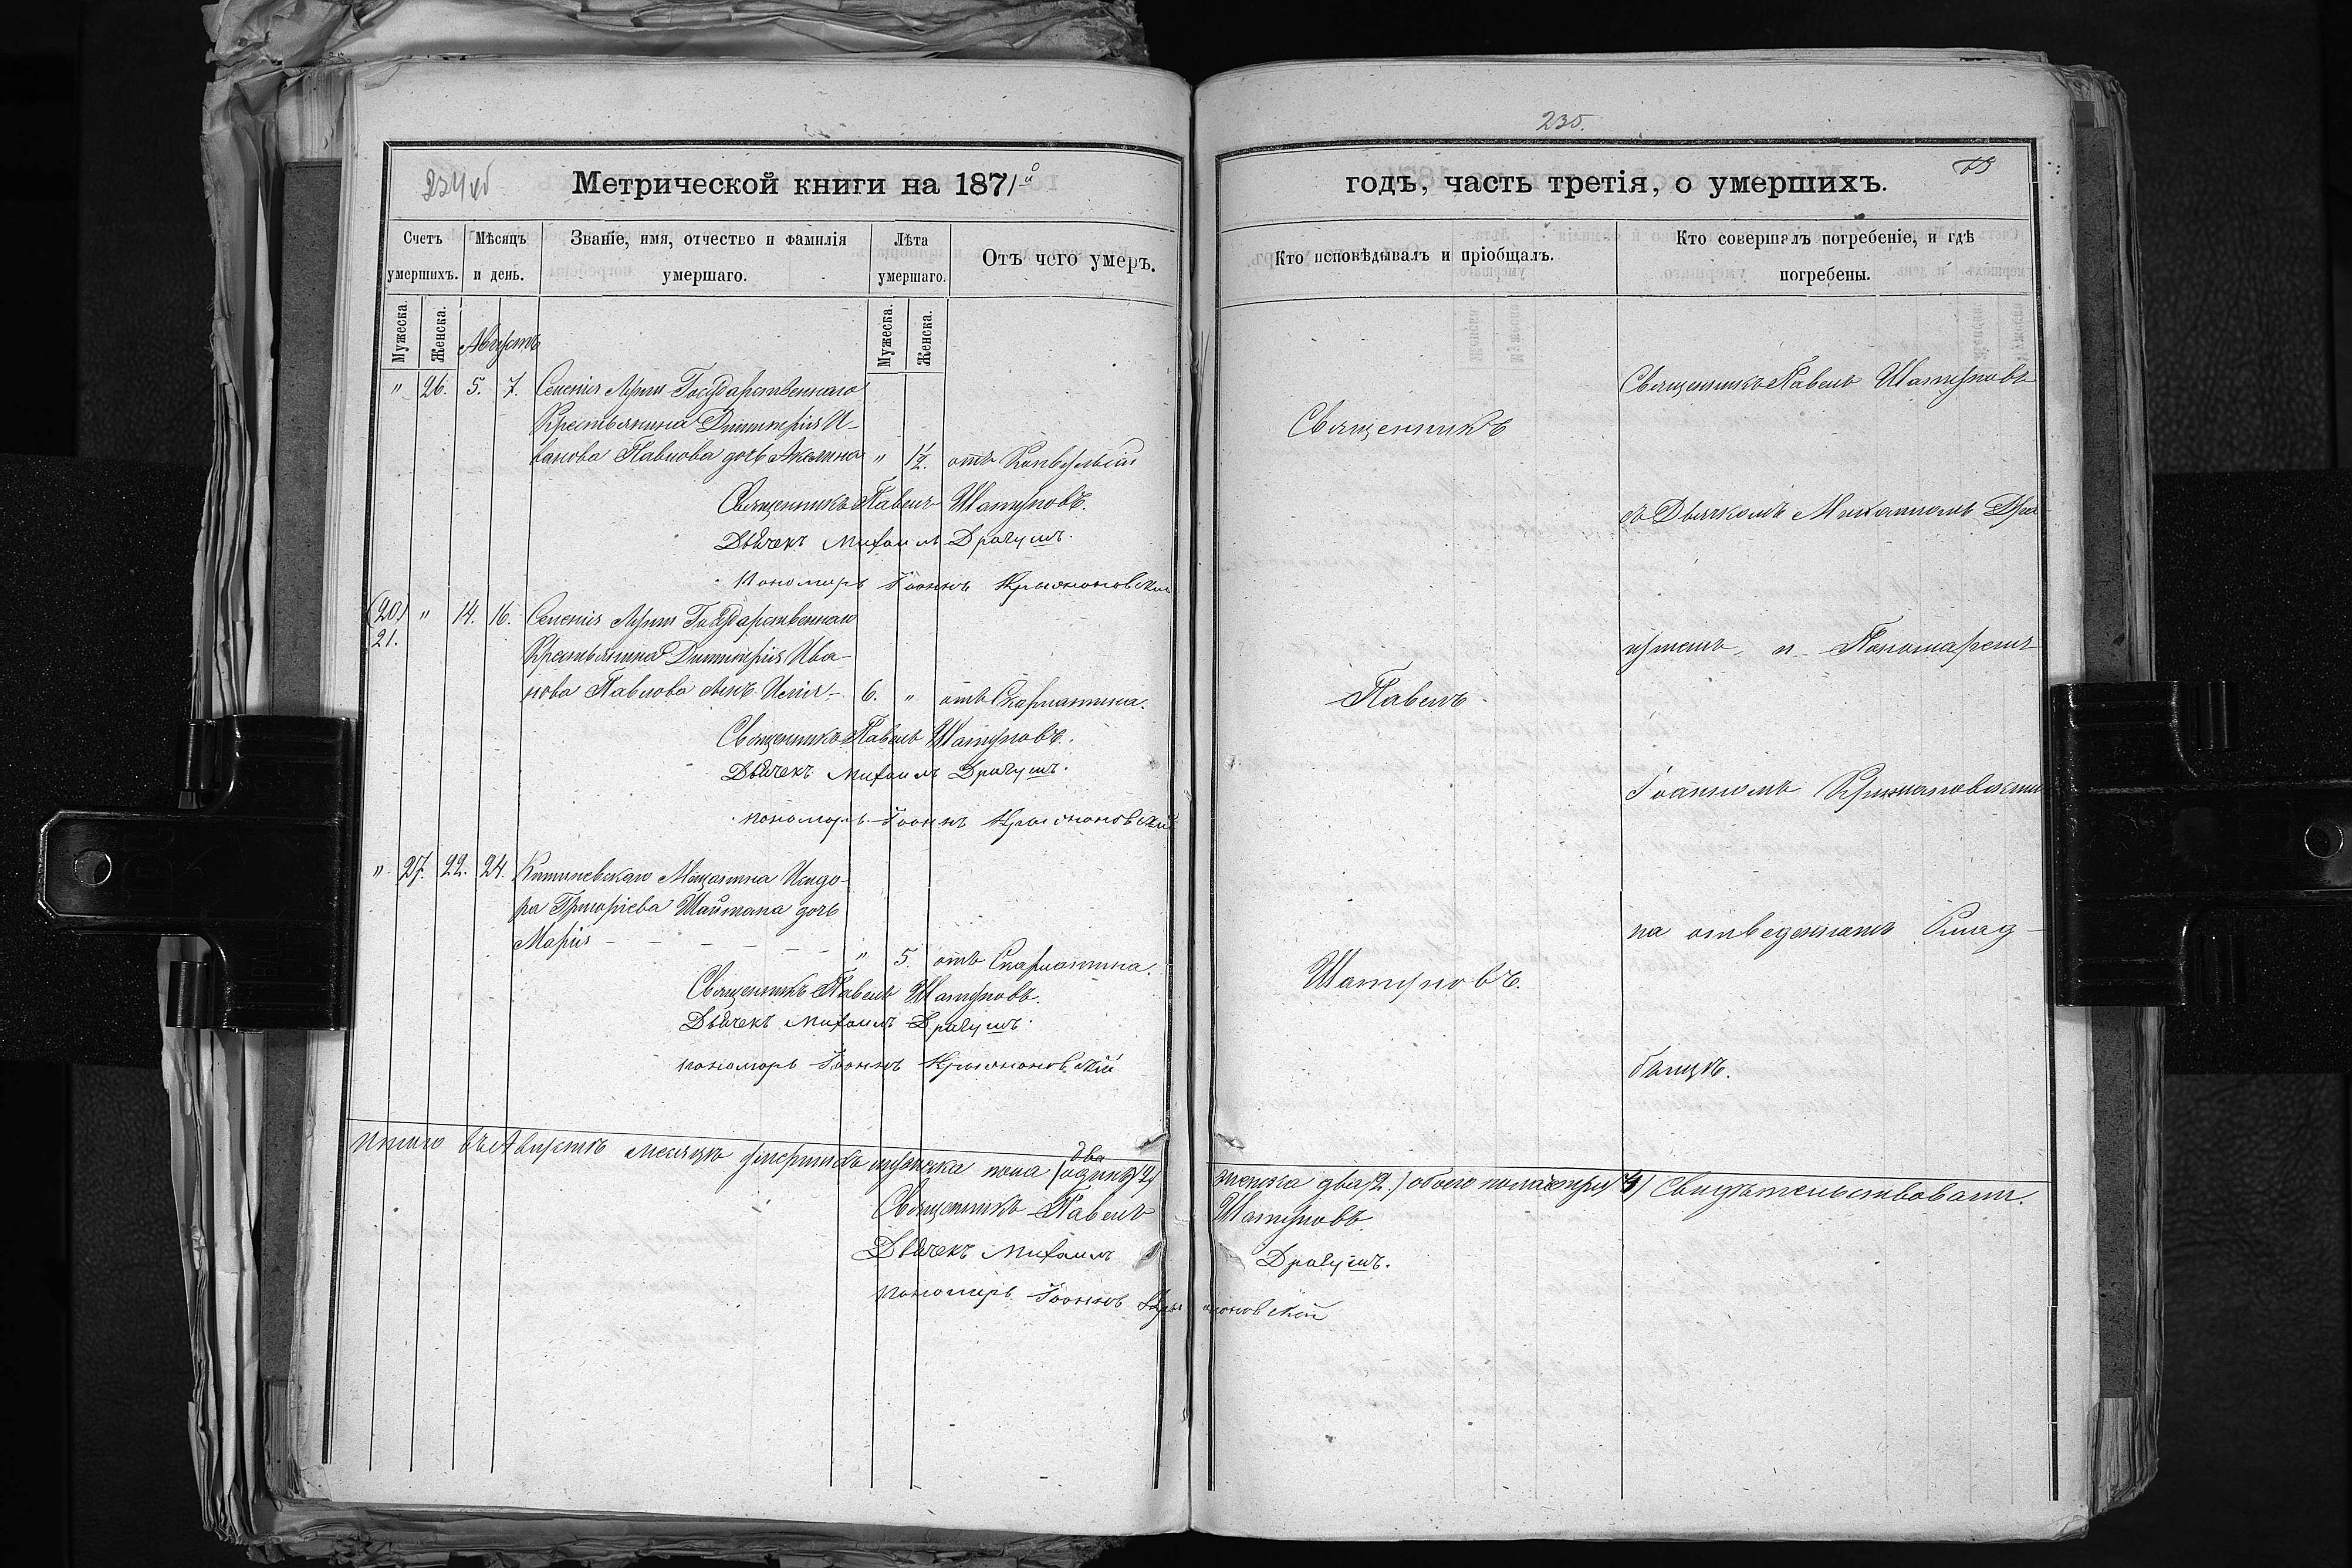 234 об
Метрической книги на 1871-й
Счетъ умершихъ.
Мѣсяцъ и день.
Званіе, имя, отчество и фамилія умершаго.
Лѣта умершаго.
Отъ чего умеръ.
Мужеска.
Женска.
Августъ
Мужеска.
Женска.
" 26. 5. 7. Селенія Лупи Государственнаго
Крестьянина Димитрія И-
ванова Павлова дочь Акилина " 1/2. отъ Конвульсіи
Священникъ Павелъ Шатуновъ.
Дьячекъ Михаилъ Драгушъ.
Пономарь Іоаннъ Крыжановскій
(20) 21. " 14. 16. Селенія Лупи Государственнаго
Крестьянина Димитрія Ива-
нова Павлова сынъ Илія - 6. " отъ Скарлатина.
Священникъ Павелъ Шатуновъ.
Дьячекъ Михаилъ Драгушъ.
пономарь Іоаннъ Крыжановскій
" 27. 22. 24. Кишиневскаго Мѣщанина Исидо-
ра Григоріева Шайтана дочь
Марія - - - - - - " 5. отъ Скарлатина.
Священникъ Павелъ Шатуновъ.
Дьячекъ Михаилъ Драгушъ.
пономарь Іоаннъ Крыжановскій
Итого въ Августѣ месяцѣ умершихъ мужеска пола (одинъ) два (2)
Священникъ Павелъ
Дьячекъ Михаилъ
пономарь Іоаннъ Крыж
235.
годъ, часть третія, о умершихъ.
Кто исповѣдывалъ и пріобщалъ.
Кто совершалъ погребеніе, и гдѣ погребены.
Священникъ
Павелъ
Шатуновъ.
Священникъ Павелъ Шатуновъ
съ Дьячкомъ Михаиломъ Дра-
гушемъ и Пономаремъ
Іоанномъ Крыжановскимъ
на отведенномъ Клад-
бищѣ.
женска два (2.) обоего пола четыри (4) Свидѣтельствовали.
Шатуновъ.
Драгушъ.
ановскій